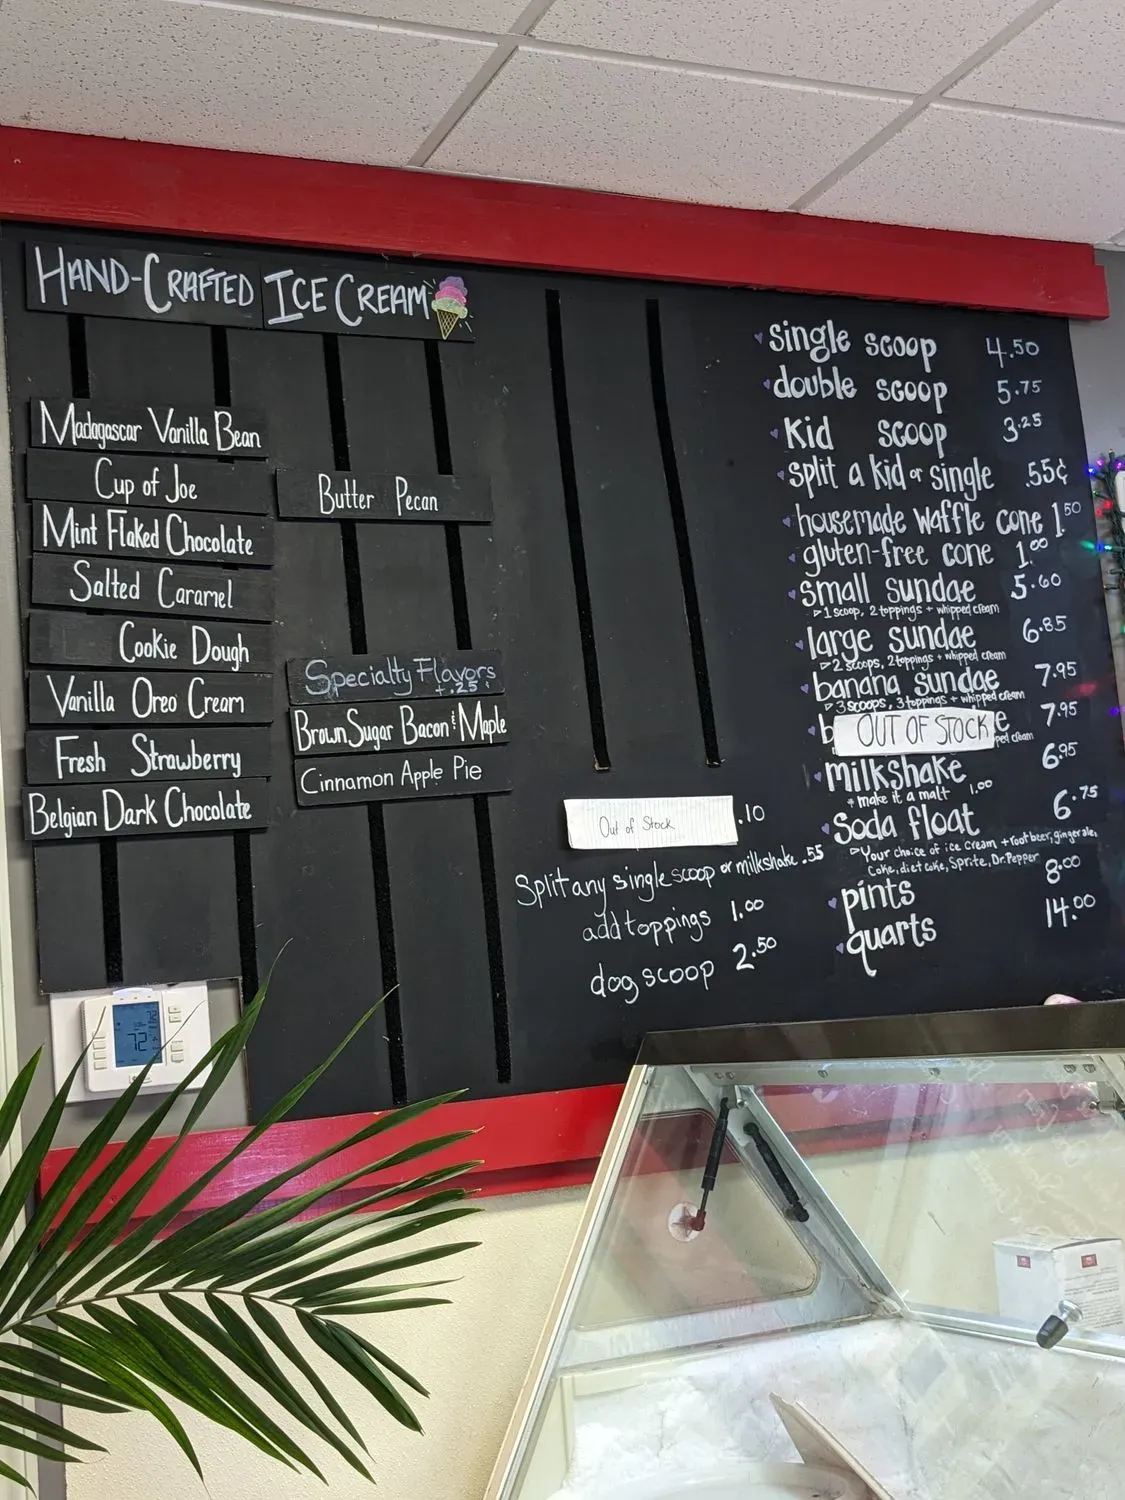 HAND-CRAFTED ICE CREAM
Madagascar Vanilla Bean
Cup of Joe
Mint Flaked Chocolate
Salted Caramel
Cookie Dough
Vanilla Oreo Cream
Fresh Strawberry
Belgian Dark Chocolate
Butter Pecan
Specialty Flavors
+ .25
Brown Sugar Bacon & Maple
Cinnamon Apple Pie
Out of Stock .10
Split any single scoop or milkshake .55
add toppings 1.00
dog scoop 2.50
single scoop 4.50
double scoop 5.75
Kid scoop 3.25
split a kid or single .55¢
housemade waffle cone 1.50
gluten-free cone 1.00
small sundae 5.60
1 scoop, 2 toppings + whipped cream
large sundae 6.85
2 scoops, 2 toppings + whipped cream
banana sundae 7.95
3 scoops, 3 toppings + whipped cream
OUT OF STOCK 7.95
milkshake 6.95
+ make it a malt 1.00
Soda float 6.75
Your choice of ice cream + root beer, ginger ale,
Coke, diet coke, Sprite, Dr. Pepper
pints 8.00
quarts 14.00
72